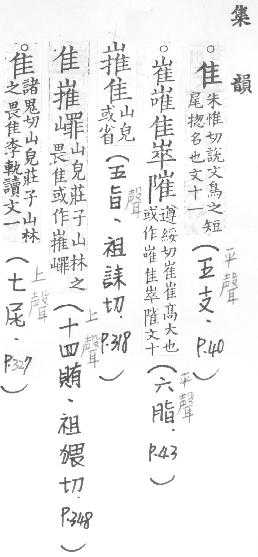 集韻
○隹朱惟切說文鳥之短尾揔名也文十一(五支．平聲P.40)
○崔嗺隹崒𨻵遵綏切崔崔高大也或作嗺隹崒𨻵文十(六脂．平聲P.43)
嶊隹山皃或省(五旨．聲祖誄切．P.318)
隹嶊嶵山皃莊子山林之畏隹或作嶊嶵(十四賄．上聲祖猥切．P.348)
○隹諸鬼切山皃莊子山林之畏隹李軌讀文一(七尾．上聲P.327)